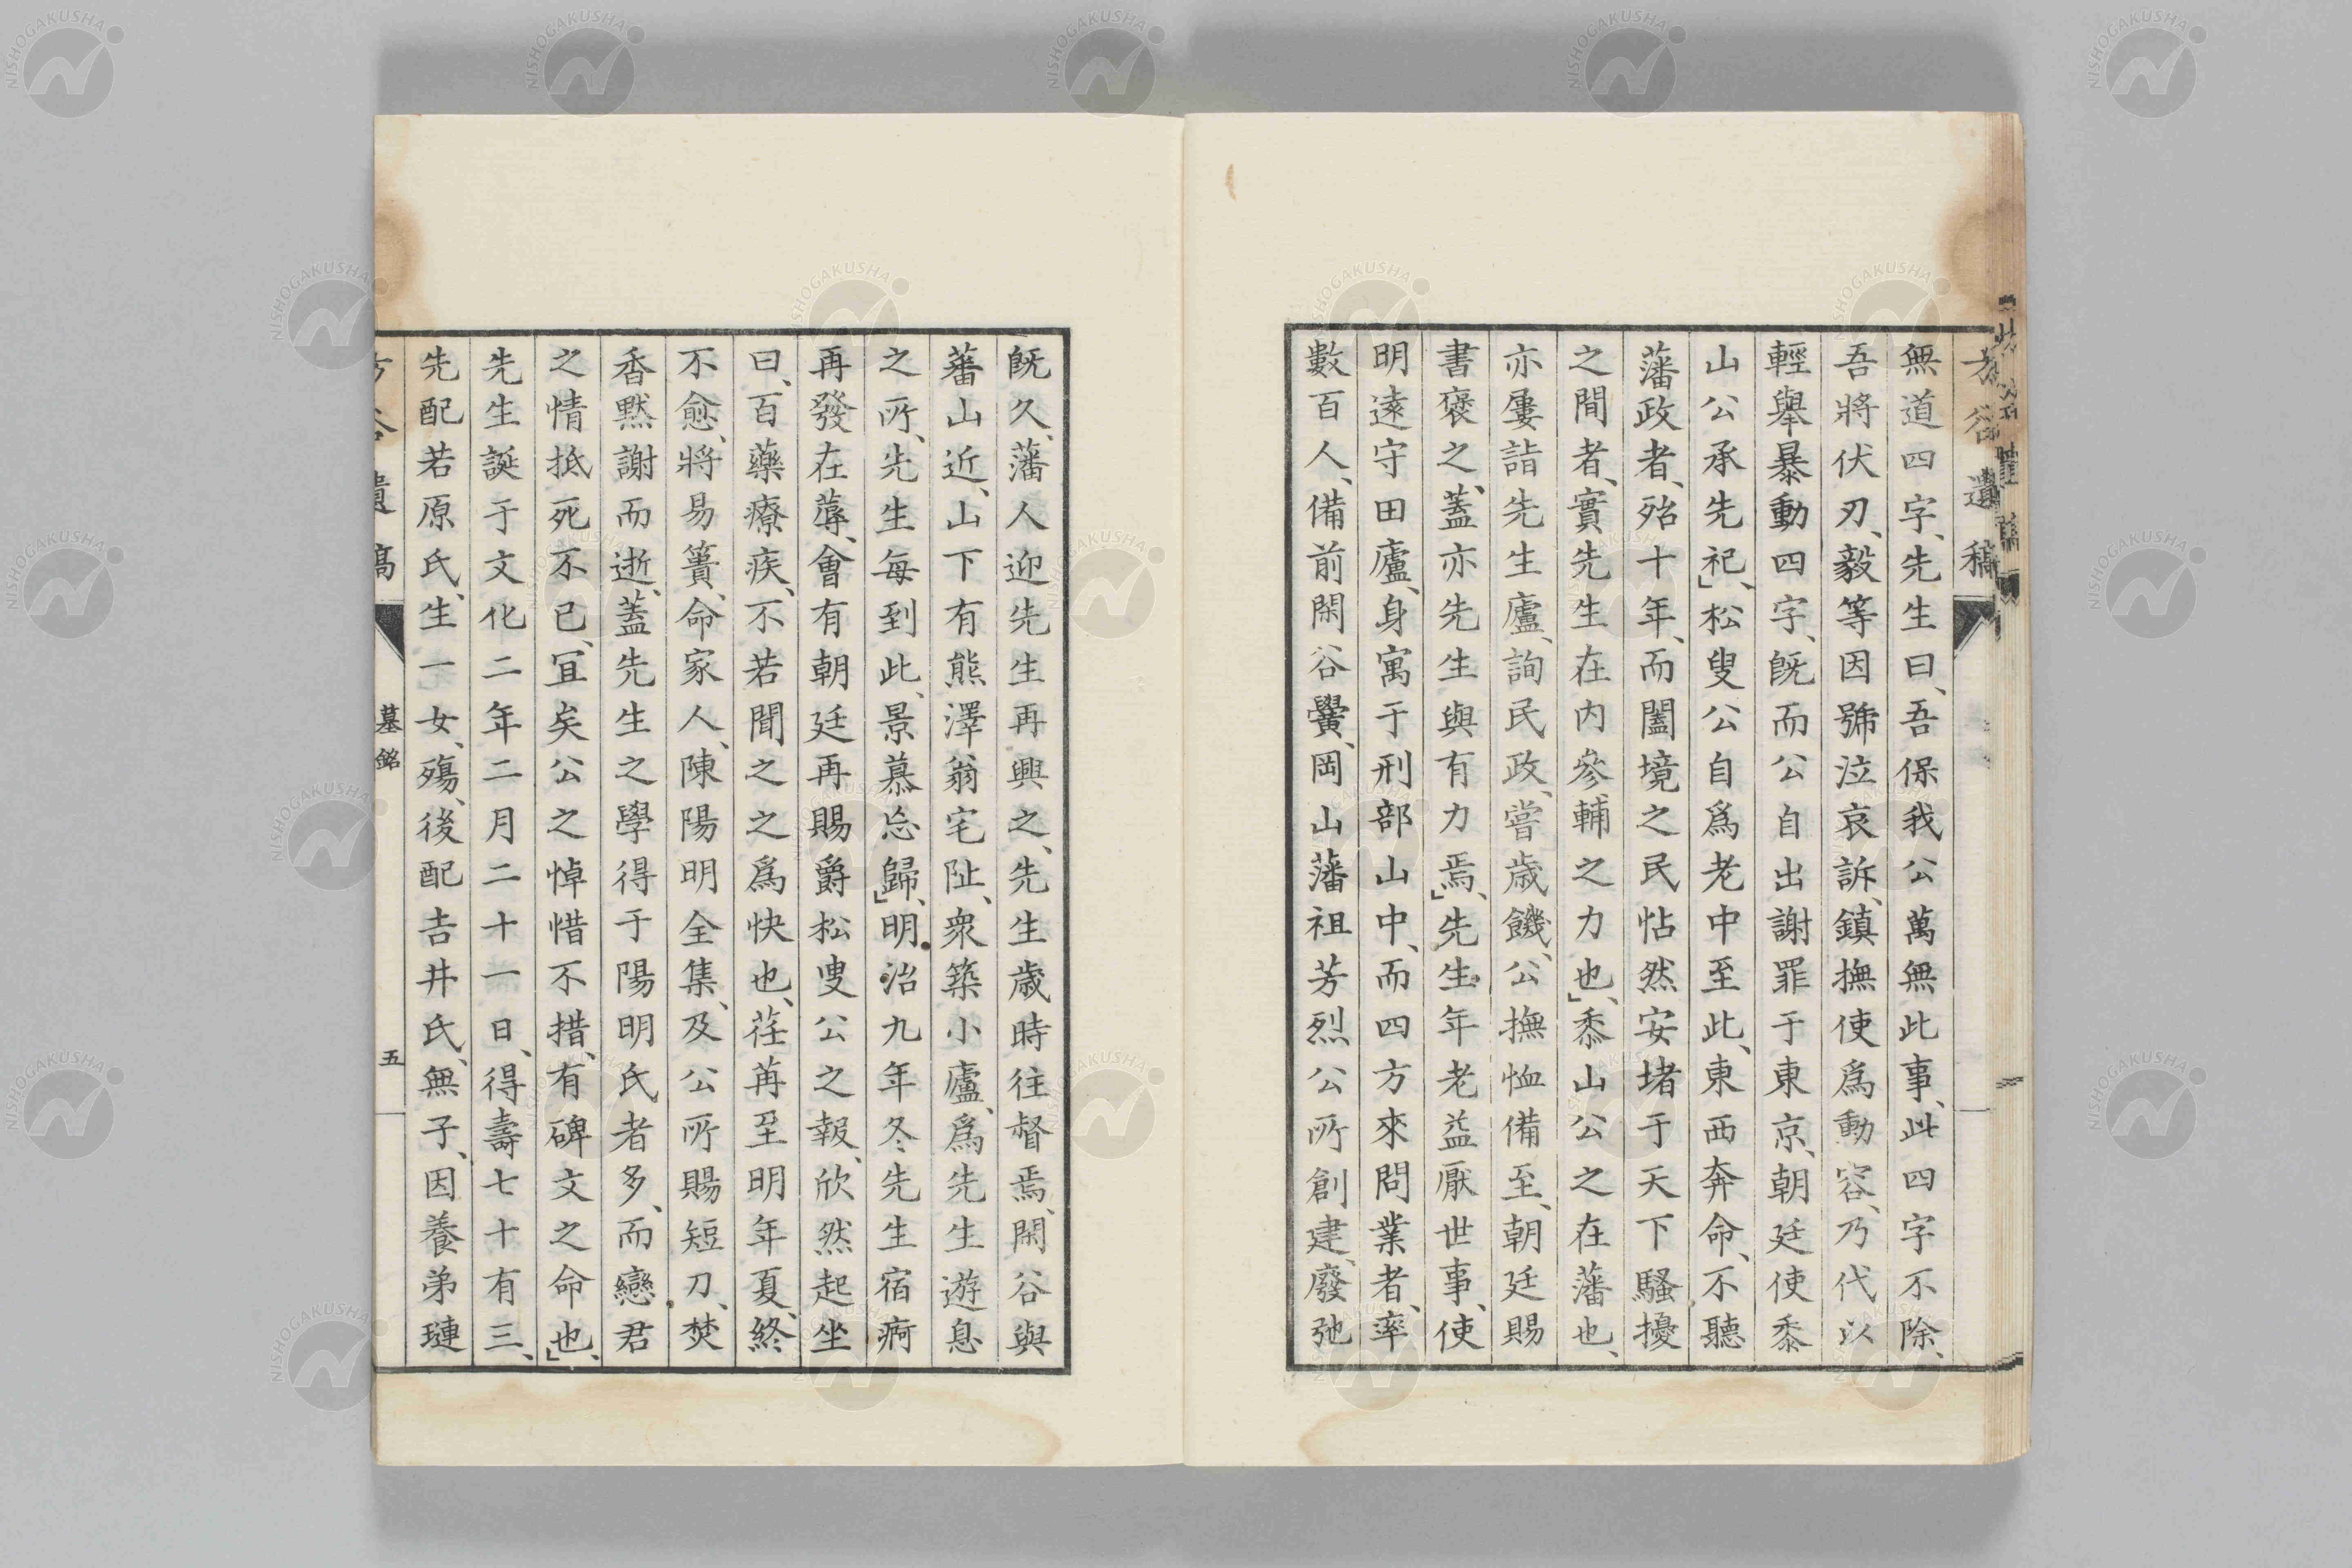 方谷遺稿
無道四字、先生曰、吾保我公萬無此事、此四字不除、
吾將伏刃、毅等因號泣哀訴、鎮撫使爲動容、乃代以
輕舉暴動四字、既而公自出謝罪于東京、朝廷使黍
山公承先祀」、松叟公自爲老中至此、東西奔命、不聽
藩政者、殆十年、而闔境之民怗然安堵于天下騷擾
之間者、實先生在内參輔之力也」、黍山公之在藩也、
亦屢詣先生廬、詢民政、嘗歳饑、公撫恤備至、朝廷賜
書褒之、蓋亦先生與有力焉」、先生年老益厭世事、使
明遠守田廬、身寓于刑部山中、而四方來問業者、率
數百人、備前閑谷黌、岡山藩祖芳烈公所創建、廢弛
既久、藩人迎先生再興之、先生歳時往督焉、閑谷與
蕃山近、山下有熊澤翁宅阯、衆築小廬、爲先生遊息
之所、先生毎到此、景慕忘歸」、明治九年冬先生宿痾
再發在蓐、會有朝廷再賜爵松叟公之報、欣然起坐
曰、百藥療疾、不若聞之之爲快也、荏苒至明年夏、終
不愈、將易簀、命家人、陳陽明全集、及公所賜短刀、焚
香黙謝而逝、蓋先生之學得于陽明氏者多、而戀君
之情抵死不已、宜矣公之悼惜不措、有碑文之命也」、
先生誕于文化二年二月二十一日、得壽七十有三、
先配若原氏、生一女、殤、後配吉井氏、無子、因養弟璉
方谷遺稿
墓銘
五
NISHOGAKUSHA